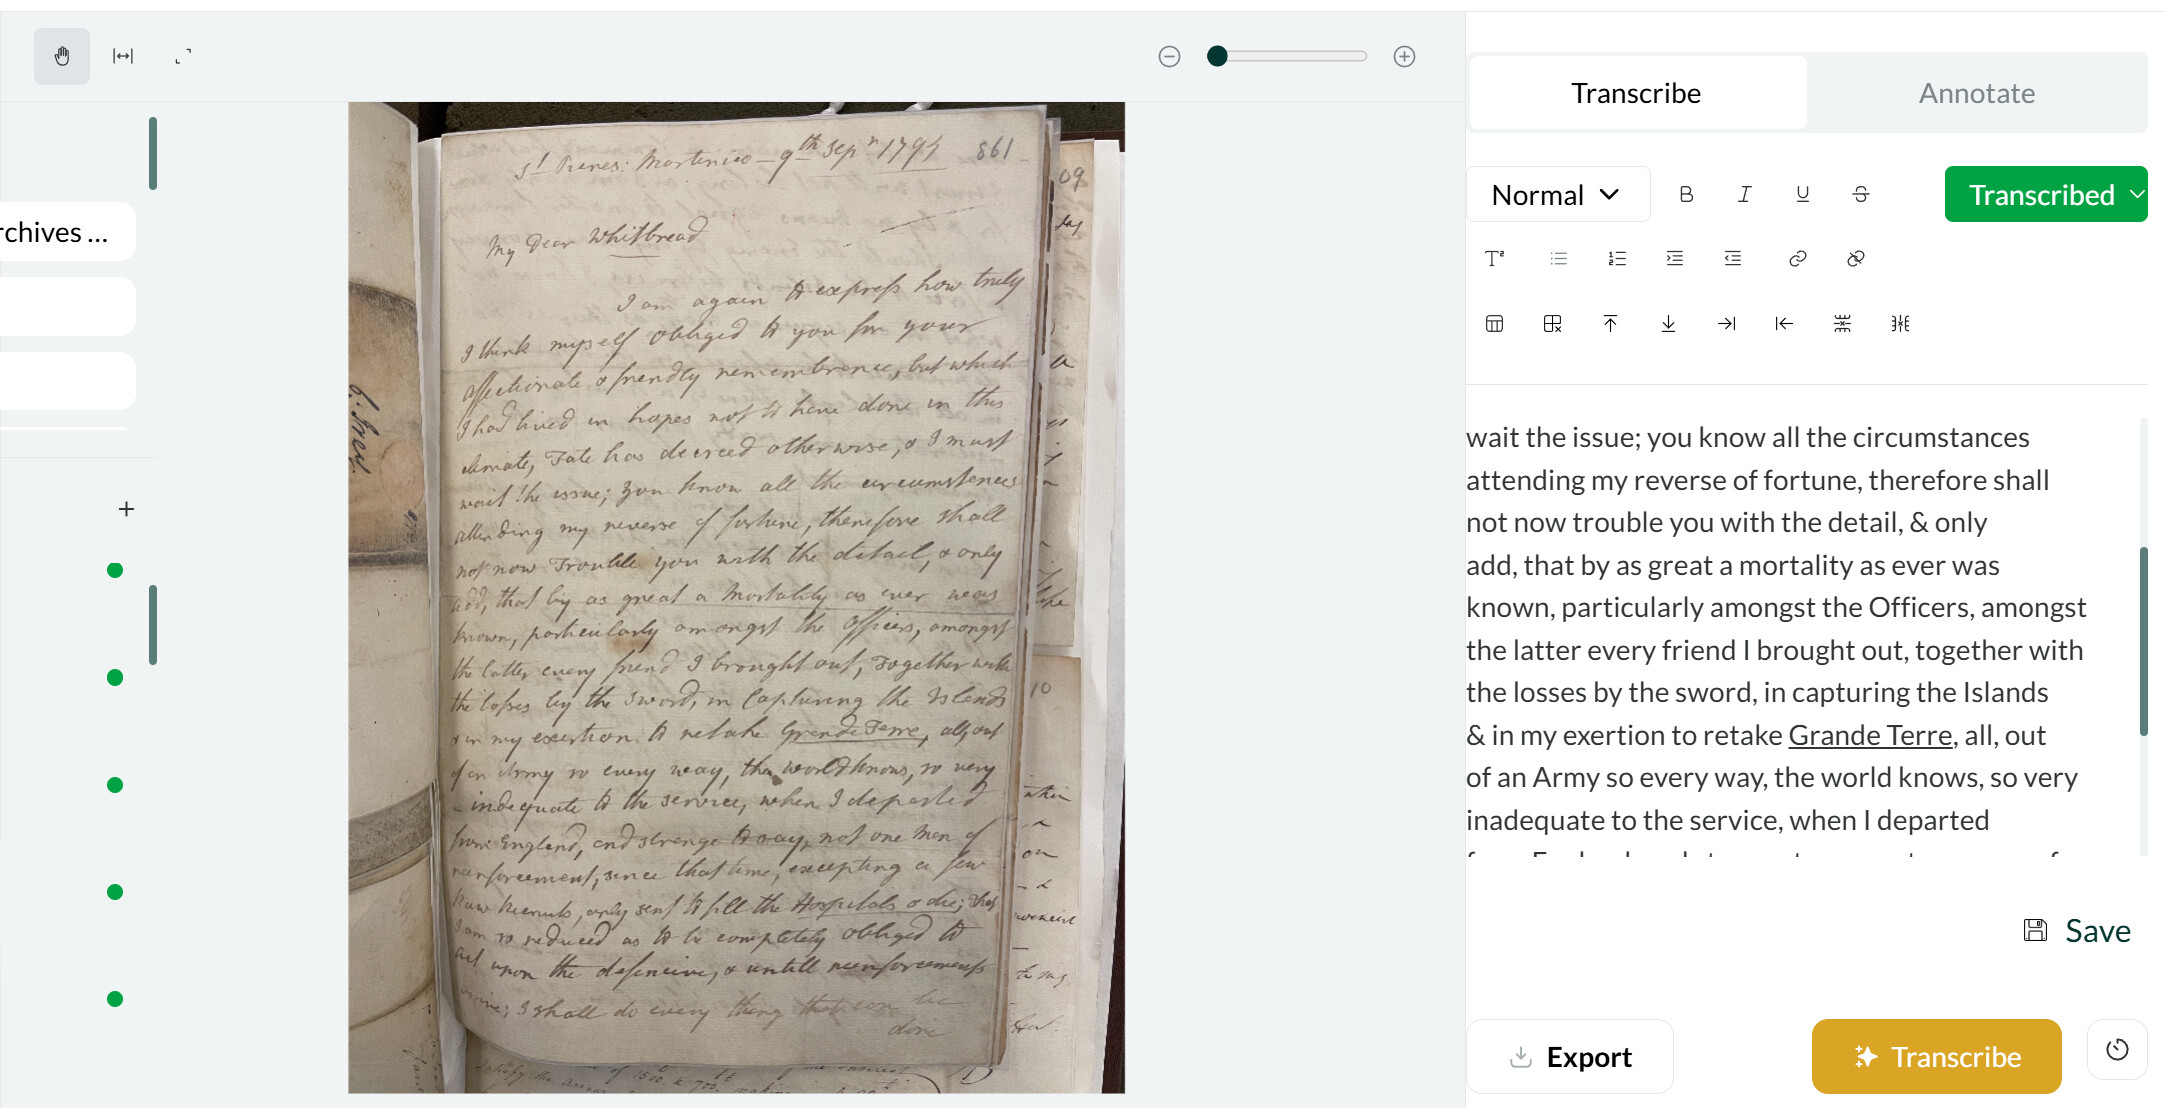 Transcribe
Annotate
Normal
B
I
U
S
Transcribed
rchives ...
St. Pierres: Martinico – 9th Sepn 1794
861
My Dear Whitbread
I am again to express how truly
I think myself obliged to you for your
affectionate & friendly remembrance, but which
I had lived in hopes not to have done in this
climate, Fate has decreed otherwise, & I must
wait the issue; you know all the circumstances
attending my reverse of fortune, therefore shall
not now trouble you with the detail, & only
add, that by as great a Mortality as ever was
known, particularly amongst the Officers, amongst
the latter every friend I brought out, together with
the losses by the Sword, in Capturing the Islands
& in my exertion to retake Grande Terre, all, out
of an Army so every way, the world knows, so very
inadequate to the service, when I departed
from England, and strange to say, not one Man of
reenforcement, since that time, excepting a few
Raw Recruits, only sent to fill the Hospitals & die; that
I am so reduced as to be completely obliged to
act upon the defensive, & untill reenforcements
arrive, I shall do every thing that can be
done
09
10
wait the issue; you know all the circumstances
attending my reverse of fortune, therefore shall
not now trouble you with the detail, & only
add, that by as great a mortality as ever was
known, particularly amongst the Officers, amongst
the latter every friend I brought out, together with
the losses by the sword, in capturing the Islands
& in my exertion to retake Grande Terre, all, out
of an Army so every way, the world knows, so very
inadequate to the service, when I departed
Save
Export
Transcribe